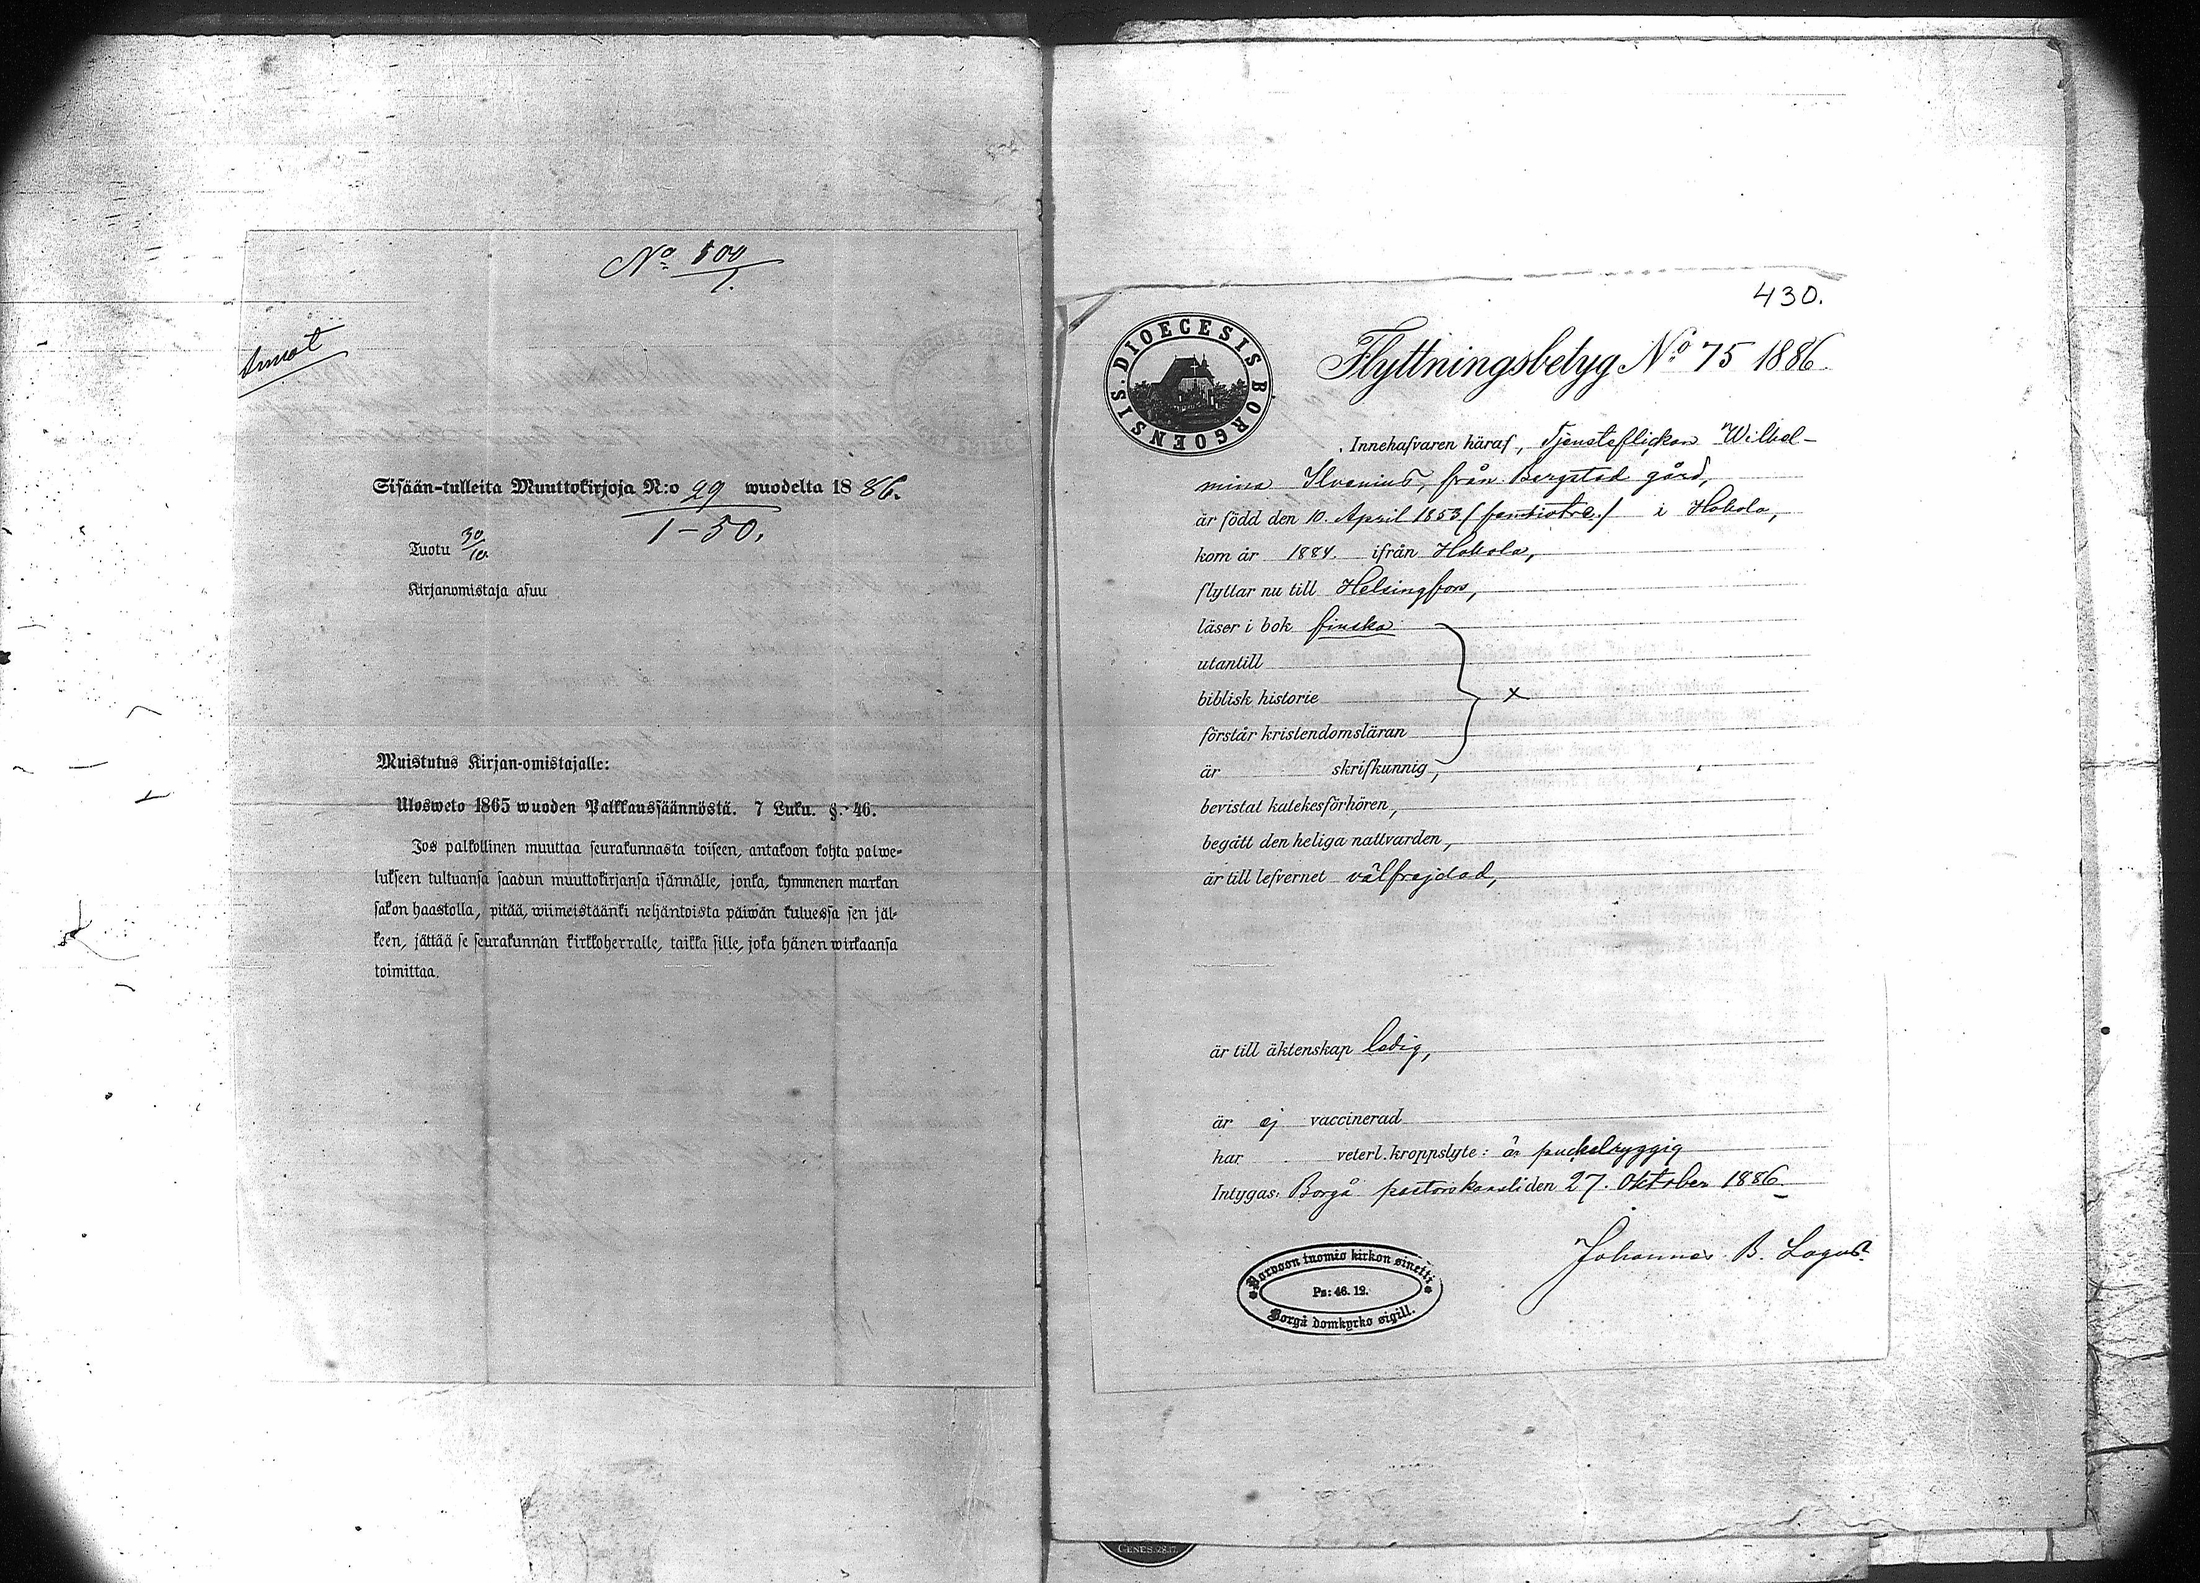 No 500
1.
Sisään-tulleita Muuttokirjoja N:o 29 wuodelta 1886.
1-50.
Tuotu 30/10.
Kirjanomistaja asuu
Muistutus Kirjan-omistajalle:
Ulosweto 1865 wuoden Palkkaussäännöstä. 7 Luku. §. 46.
Jos palkollinen muuttaa seurakunnasta toiseen, antakoon kohta palwe-
lukseen tultuansa saadun muuttokirjansa isännälle, jonka, kymmenen markan
sakon haastolla, pitää, wiimeistäänki neljäntoista päiwän kuluessa sen jäl-
keen, jättää se seurakunnan kirkkoherralle, taikka sille, joka hänen wirkaansa
toimittaa.
430.
DIOECESIS BORGOENSIS.
Flyttningsbetyg No 75 1886.
Innehafvaren häraf, Tjensteflickan Wilhel-
mina Ilvenius, från Bergstad gård,
är född den 10. April 1853 (femtiotre) i Hokola,
kom år 1884. ifrån Hokola,
flyttar nu till Helsingfors,
läser i bok finska
utantill
biblisk historie x
förstår kristendomsläran
är skrifkunnig,
bevistat katekesförhören,
begått den heliga nattvarden,
är till lefvernet välfrejdad,
är till äktenskap ledig,
är ej vaccinerad
har veterl. kroppslyte: är puckelryggig
Intygas: Borgå pastorskansli den 27. Oktober 1886.
Johannes B. Lagus.
Porvoon tuomio kirkon sinetti
Ps: 46. 12.
Borgå domkyrko sigill.